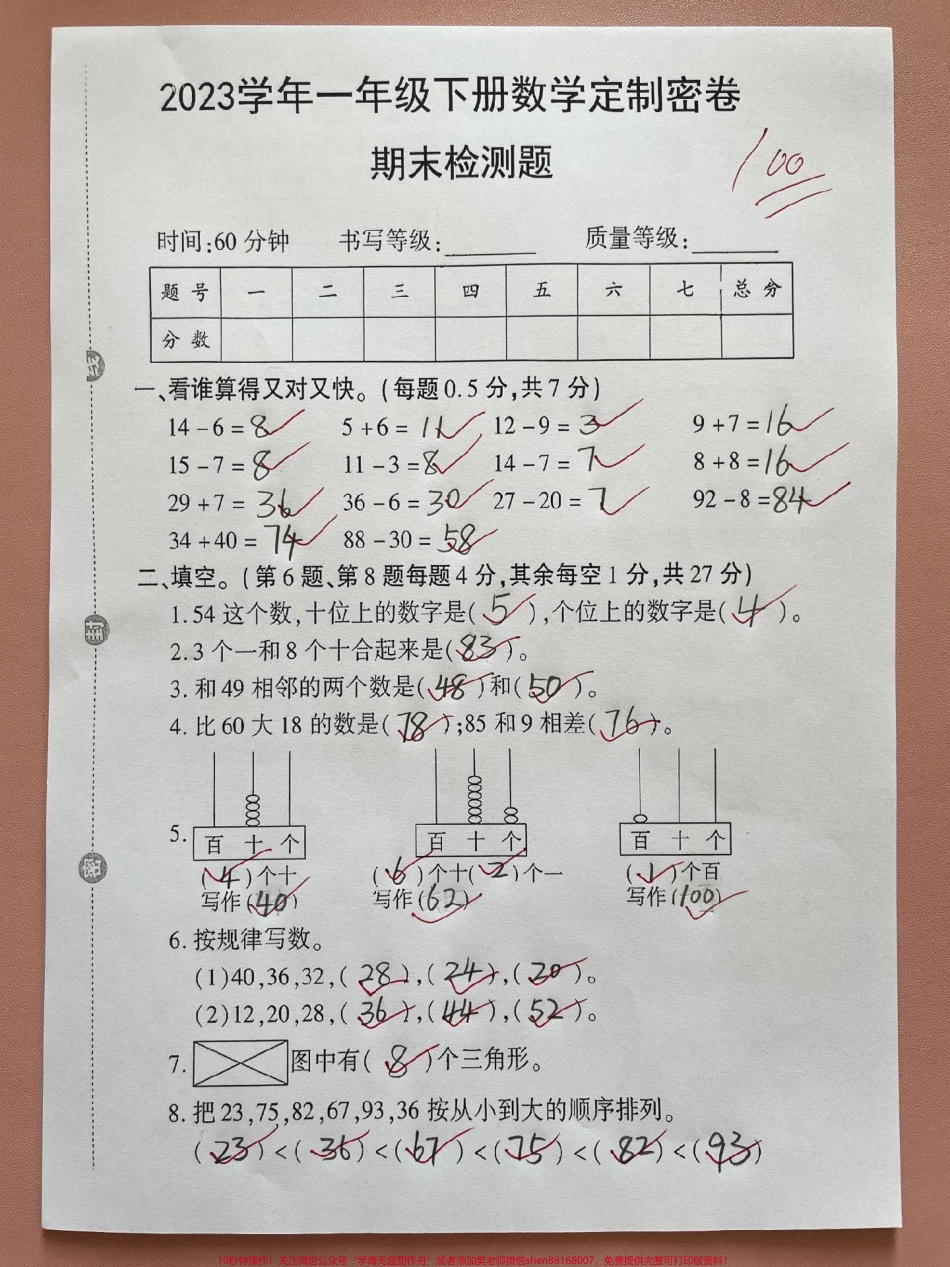 2023学年一年级下册数学定制密卷
期末检测题
100
时间:60 分钟 书写等级:______ 质量等级:______
题 号 一 二 三 四 五 六 七 总 分
分 数
一、看谁算得又对又快。(每题0.5分,共7分)
14-6=8 5+6=11 12-9=3 9+7=16
15-7=8 11-3=8 14-7=7 8+8=16
29+7=36 36-6=30 27-20=7 92-8=84
34+40=74 88-30=58
二、填空。(第6题、第8题每题4分,其余每空1分,共27分)
1.54这个数,十位上的数字是(5),个位上的数字是(4)。
2.3个一和8个十合起来是(83)。
3.和49相邻的两个数是(48)和(50)。
4.比60大18的数是(78);85和9相差(76)。
5. 百 十 个 百 十 个 百 十 个
(4)个十 (6)个十(2)个一 (1)个百
写作(40) 写作(62) 写作(100)
6.按规律写数。
(1)40,36,32,(28),(24),(20)。
(2)12,20,28,(36),(44),(52)。
7. 图中有(8)个三角形。
8.把23,75,82,67,93,36按从小到大的顺序排列。
(23)<(36)<(67)<(75)<(82)<(93)
封
密
10秒钟操作!关注微信公众号“学海无涯甜作舟”或者添加樊老师微信shen88168007,免费提供完整可打印版资料!